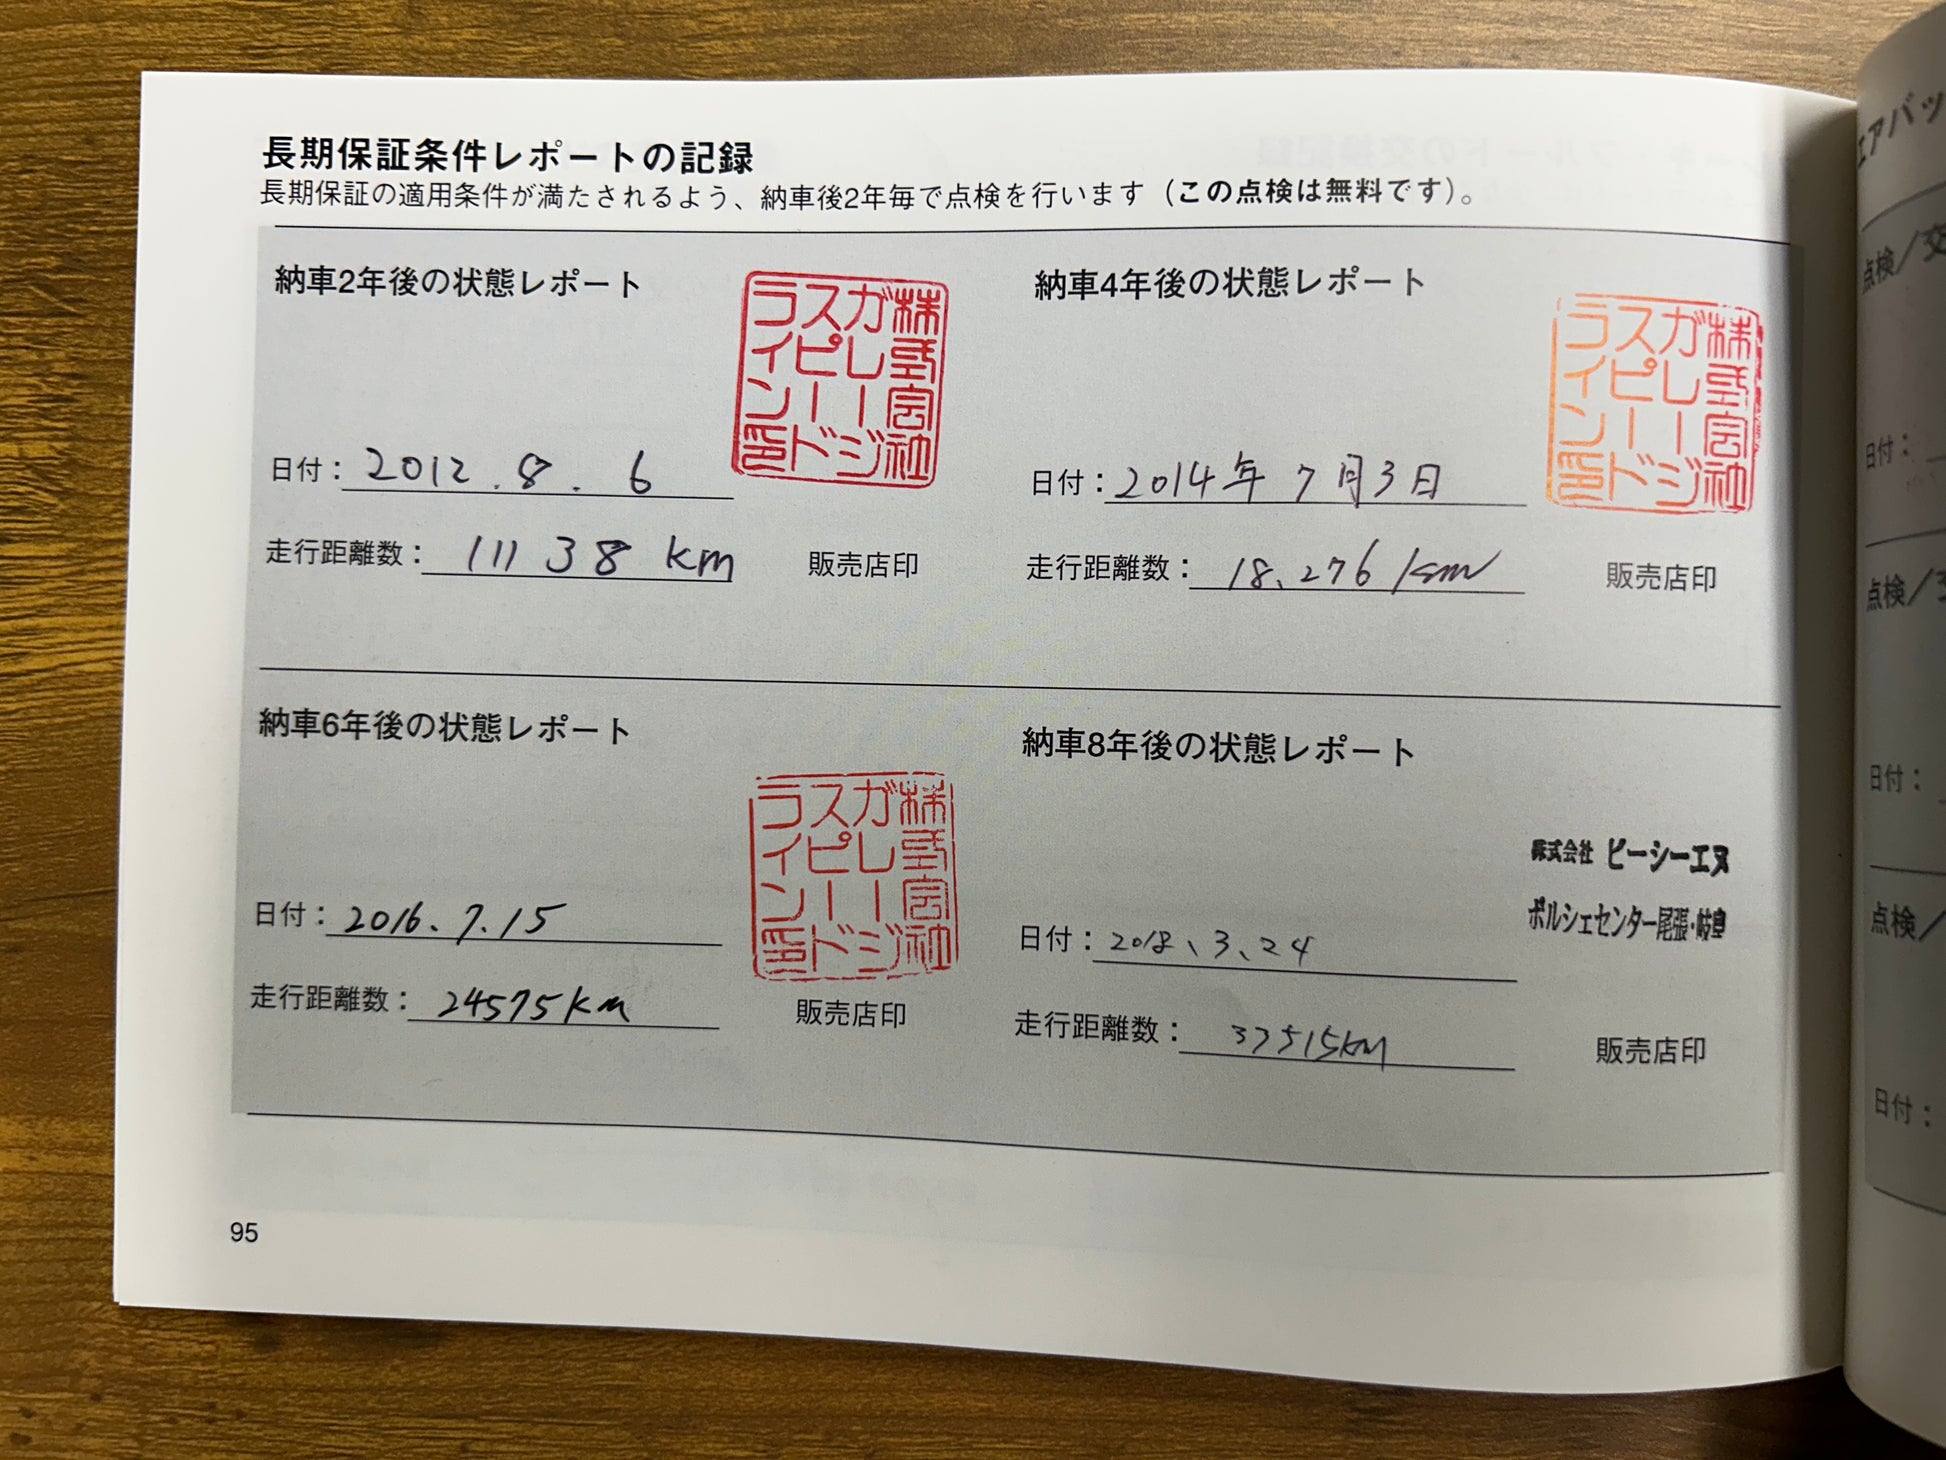 長期保証条件レポートの記録
長期保証の適用条件が満たされるよう、納車後2年毎で点検を行います（この点検は無料です）。
納車2年後の状態レポート
株式会社
ガレージ
スピード
ライン印
日付：2012.8.6
走行距離数：11138km
販売店印
納車4年後の状態レポート
株式会社
ガレージ
スピード
ライン印
日付：2014年7月3日
走行距離数：18,276km
販売店印
納車6年後の状態レポート
株式会社
ガレージ
スピード
ライン印
日付：2016、7.15
走行距離数：24575km
販売店印
納車8年後の状態レポート
株式会社 ピーシーエヌ
ポルシェセンター尾張・岐阜
日付：2018、3、24
走行距離数：37515km
販売店印
95
エアバッ
点検／交
日付：
点検／交
日付：
点検／
日付：